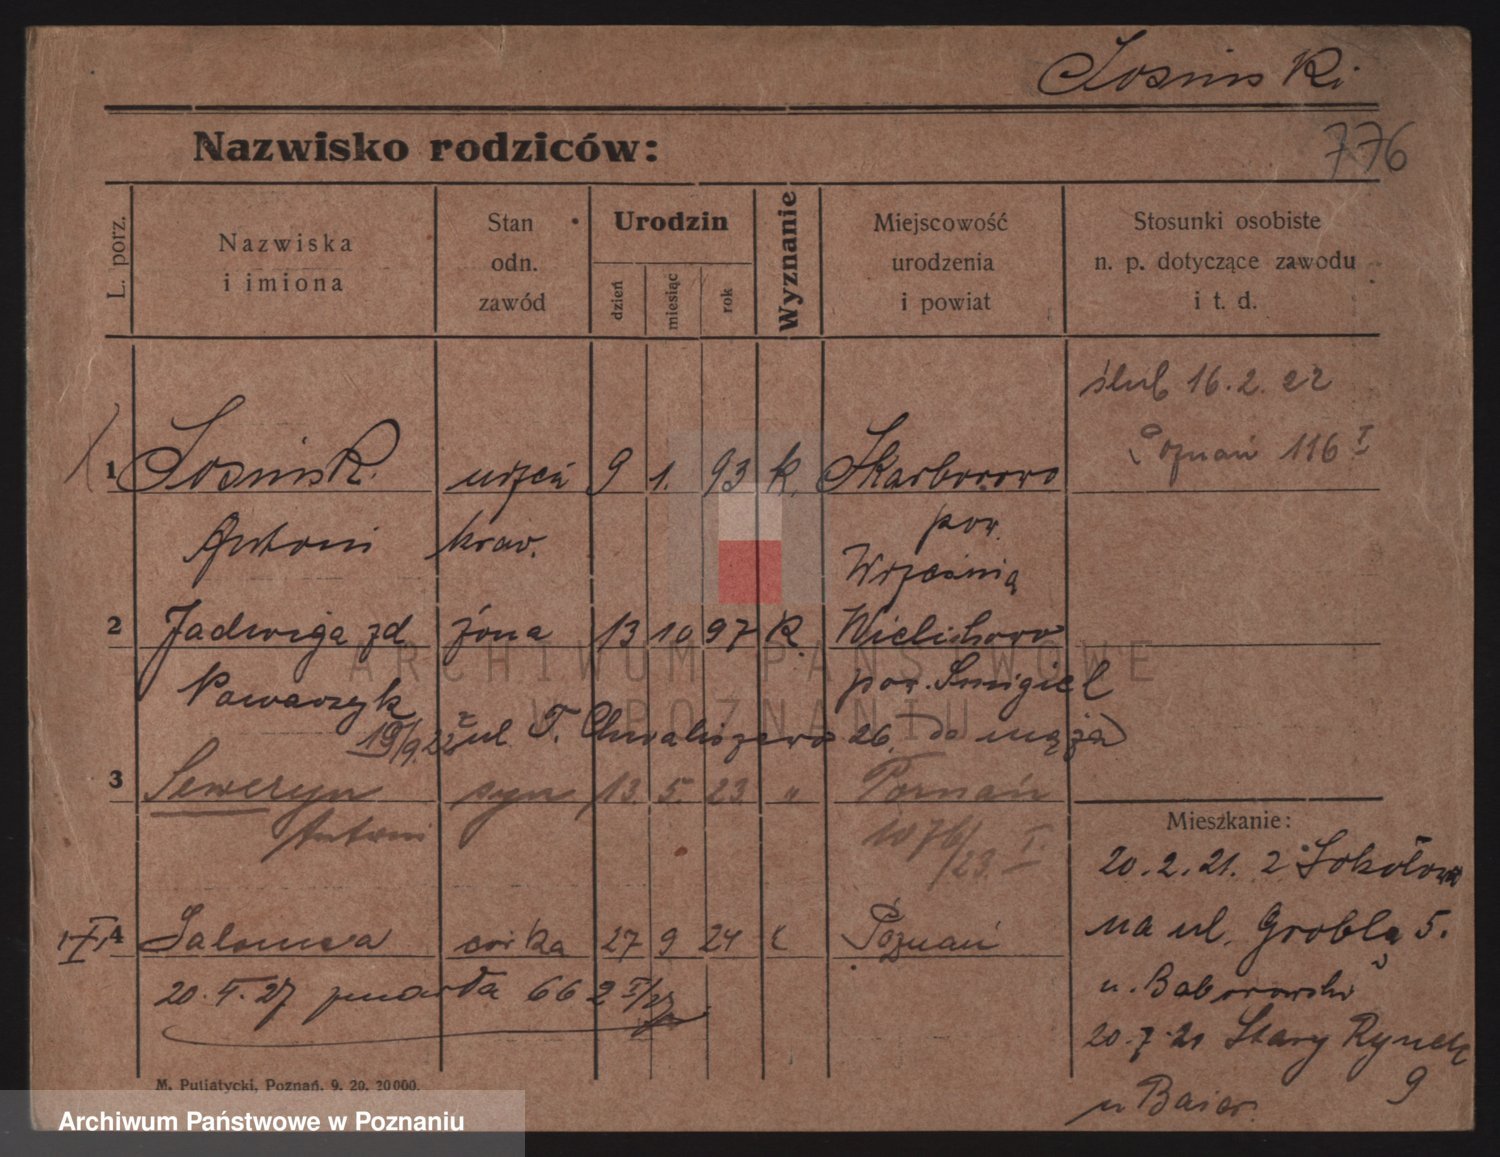 Łosiński
776
Nazwisko rodziców:
L. porz.
Nazwiska i imiona
Stan odn. zawód
Urodzin
dzień
miesiąc
rok
Wyznanie
Miejscowość urodzenia i powiat
Stosunki osobiste n. p. dotyczące zawodu i t. d.
ślub 16.2.22
Poznań 116 I
1 Łosińsk. 9 1. 93 k.
Antoni
pow.
Wrześnią
2 Jadwiga zd żona 13 10 97 k.
Nawarzyk pow. Smigiel
19/9.22 z ul. F. Chwaliszewo 26 do męża
3 Seweryn syn 13. 5. 23. " Poznań
Antoni 1076/23. I.
Mieszkanie:
20.2.21. z
4 Salomea córka 27 9 24 k Poznań
na ul. Grobla 5.
20.I.27 zmarła 66 2 I/27
u. Baborowski
20.7.21 Stary Rynek
9
u
M. Putiatycki, Poznań. 9. 20. 20000.
ARCHIWUM PAŃSTWOWE
W POZNANIU
Archiwum Państwowe w Poznaniu